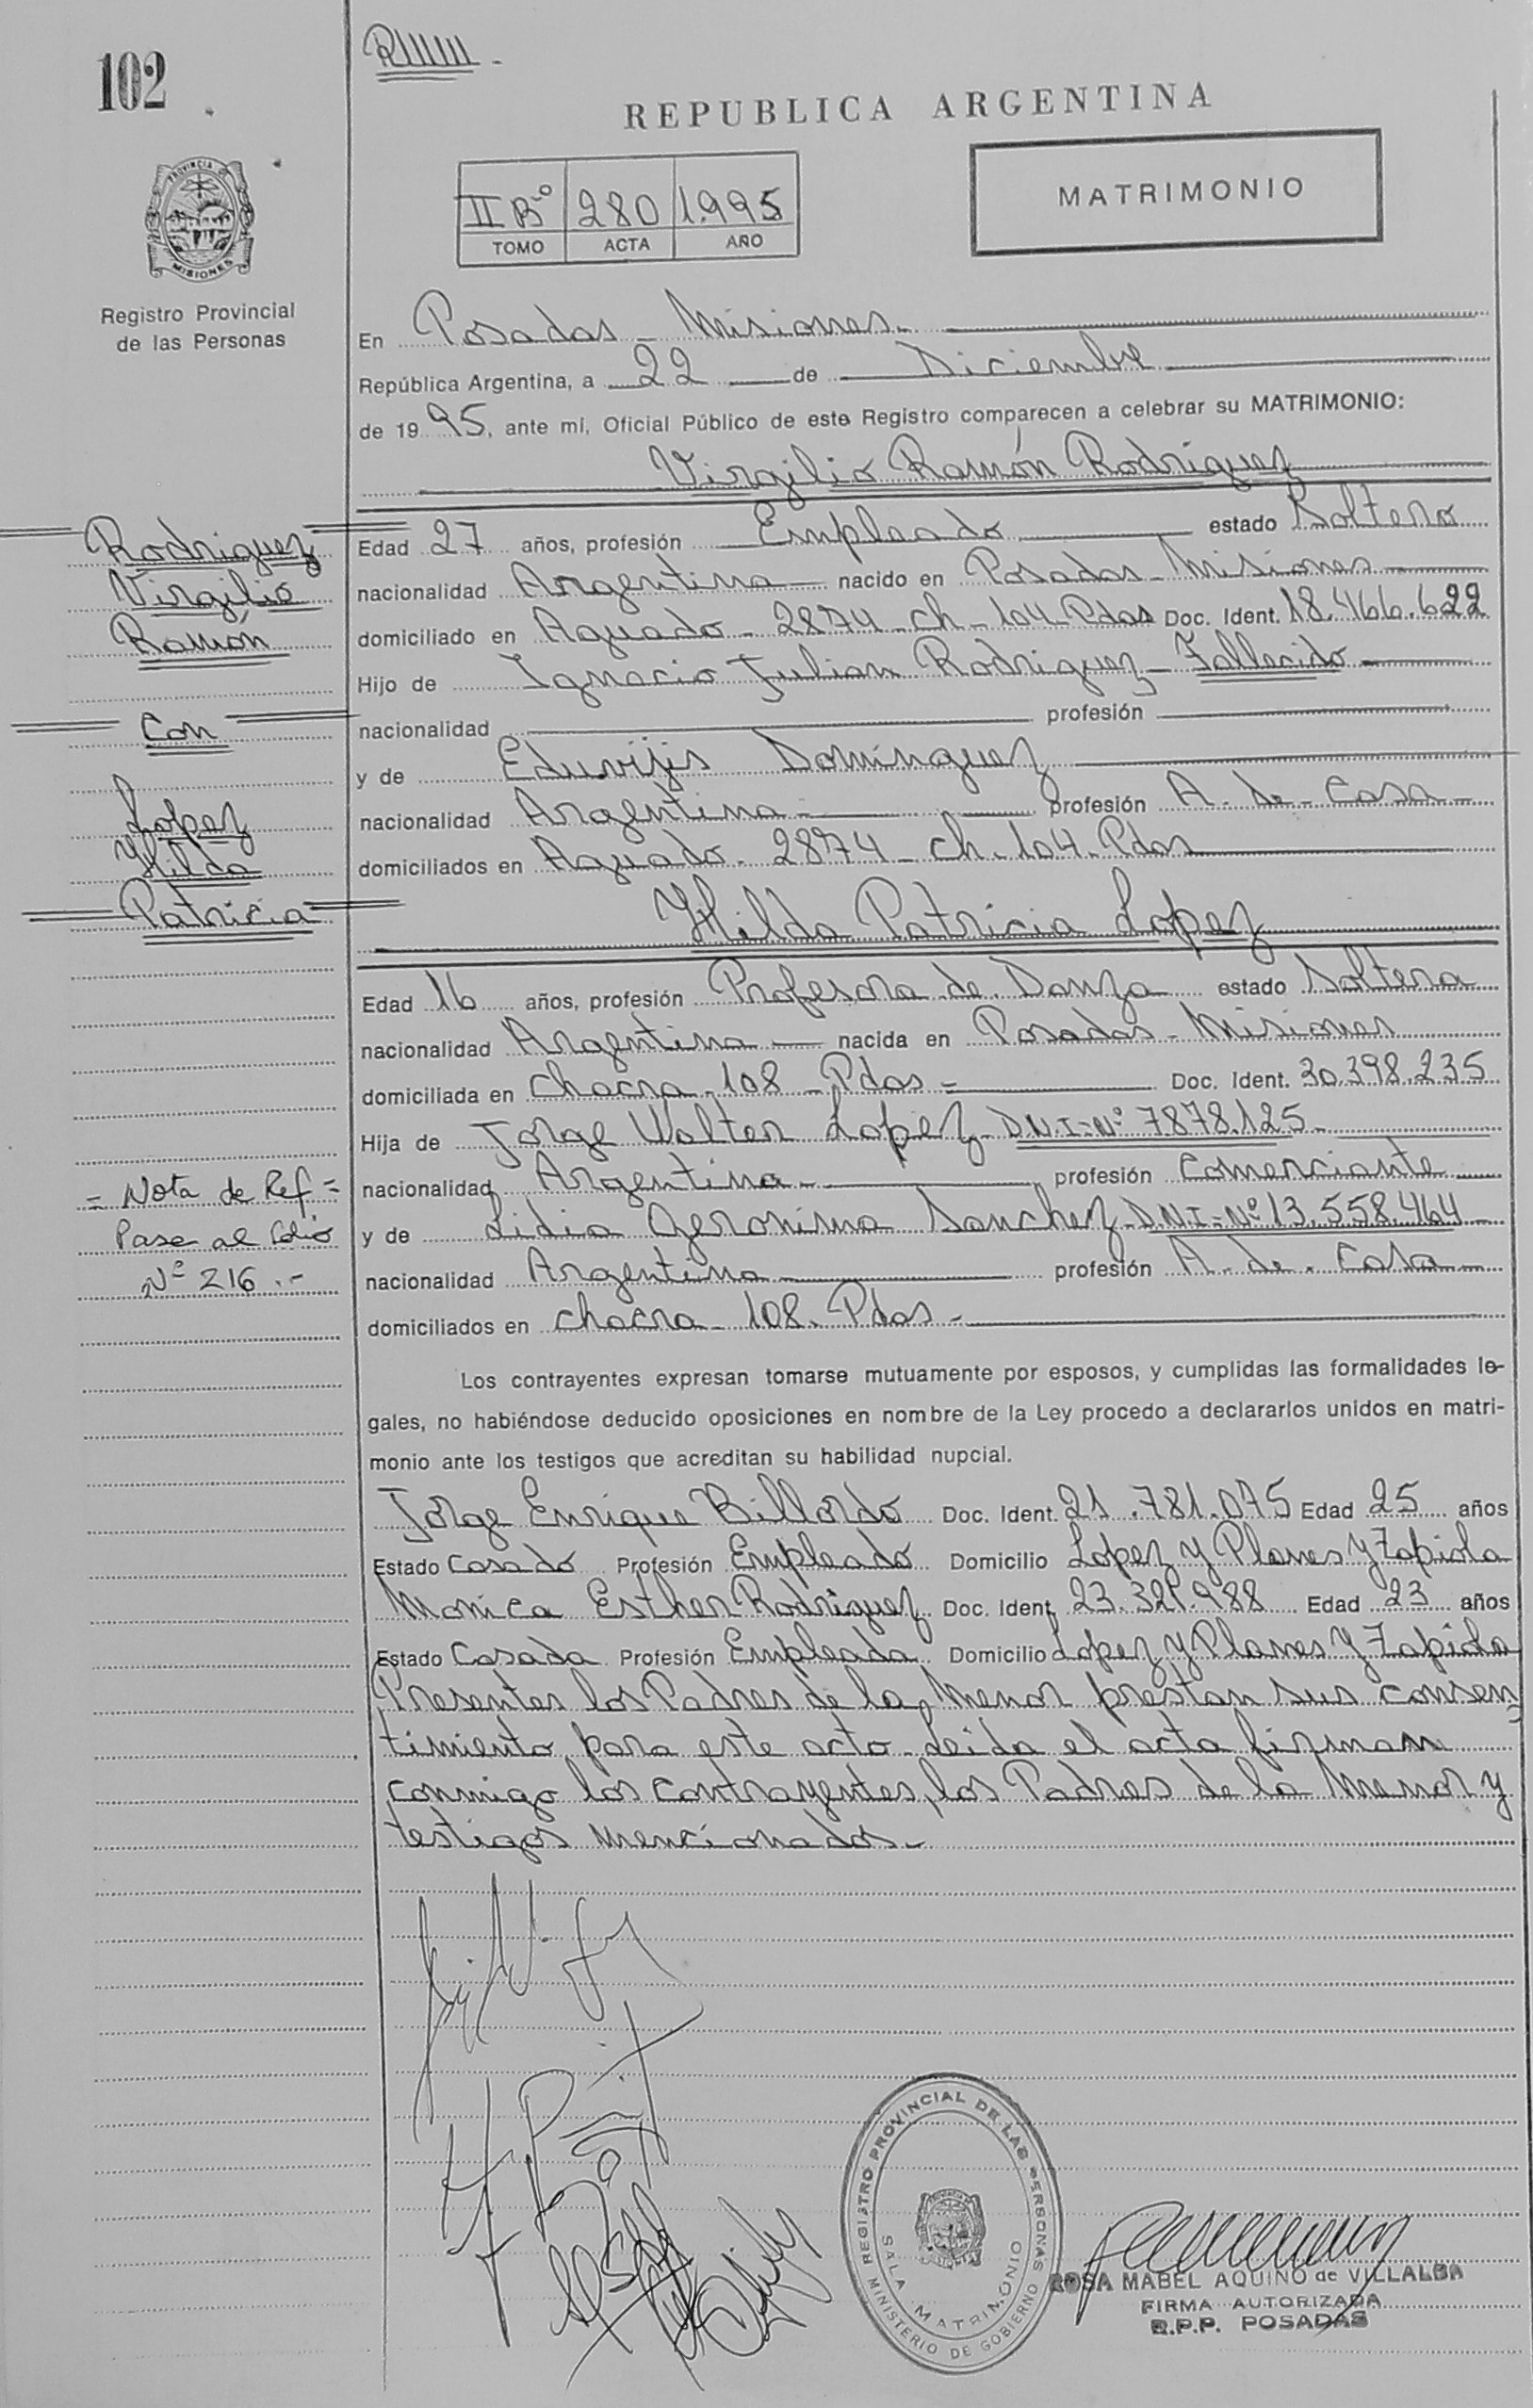 102
REPUBLICA ARGENTINA
II Bº 280 1.995
TOMO ACTA AÑO
MATRIMONIO
PROVINCIA
MISIONES
Registro Provincial
de las Personas
En Posadas - Misiones -
República Argentina, a 22 de Diciembre
de 19 95, ante mí, Oficial Público de este Registro comparecen a celebrar su MATRIMONIO:
Virgilio Ramón Rodriguez
Rodriguez
Virgilio
Ramón
Con
Lopez
Hilda
Patricia
Edad 27 años, profesión Empleado estado Soltero
nacionalidad Argentina nacido en Posadas - Misiones
domiciliado en Aguado - 2874 - ch - 104 - Pdas Doc. Ident. 18.466.622
Hijo de Ignacio Julian Rodriguez - Fallecido -
nacionalidad profesión
y de Eduvijis Dominguez
nacionalidad Argentina - profesión A. de - Casa -
domiciliados en Aguado - 2874 - ch - 104 - Pdas
Hilda Patricia Lopez
Edad 16 años, profesión Profesora de Danza estado Soltera
nacionalidad Argentina nacida en Posadas - Misiones
domiciliada en chacra - 108 - Pdas - Doc. Ident. 30.398.235
Hija de Jorge Walter Lopez - D.N.I - Nº 7878.125 -
nacionalidad Argentina - profesión Comerciante
y de Lidia Geronima Sanchez - D.N.I - Nº 13.558.464
nacionalidad Argentina profesión A. de. Casa -
domiciliados en chacra - 108. Pdas -
= Nota de Ref =
Pase al folio
Nº 216 .-
Los contrayentes expresan tomarse mutuamente por esposos, y cumplidas las formalidades le-
gales, no habiéndose deducido oposiciones en nombre de la Ley procedo a declararlos unidos en matri-
monio ante los testigos que acreditan su habilidad nupcial.
Jorge Enrique Billordo Doc. Ident. 21.781.075 Edad 25 años
Estado Casado Profesión Empleado Domicilio Lopez y Planes y Zapiola
Monica Esther Rodriguez Doc. Ident. 23.321.988 Edad 23 años
Estado Casada Profesión Empleada Domicilio Lopez y Planes y Zapiola
Presentes los Padres de la Menor prestan sus consen
timiento para este acto - Leida el acta firman
conmigo los contrayentes, los Padres de la Menor y
testigos mencionados -
REGISTRO PROVINCIAL DE LAS PERSONAS
SALA MATRIMONIO
MINISTERIO DE GOBIERNO
ROSA MABEL AQUINO de VILLALBA
FIRMA AUTORIZADA
R.P.P. POSADAS